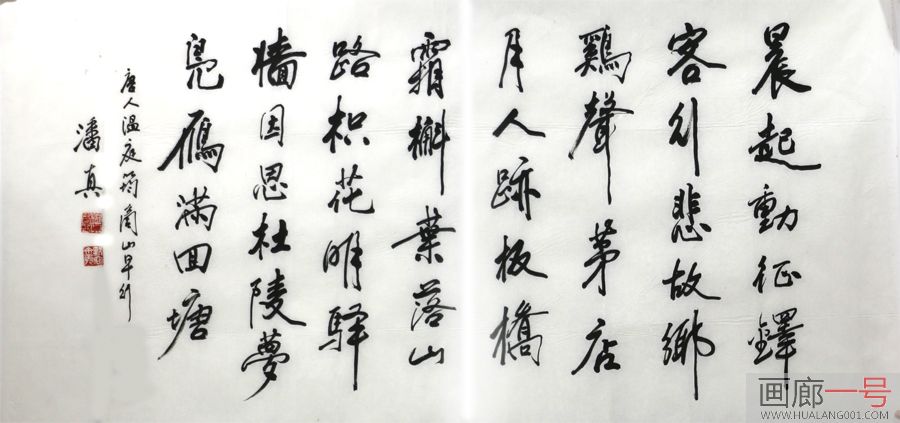 晨起動征鐸
客行悲故鄉
鷄聲茅店
月人跡板橋
霜槲葉落山
路枳花明驛
牆因思杜陵夢
鳧鴈滿回塘
唐人温庭筠商山早行
潘真
画廊一号
WWW.HUALANG001.COM